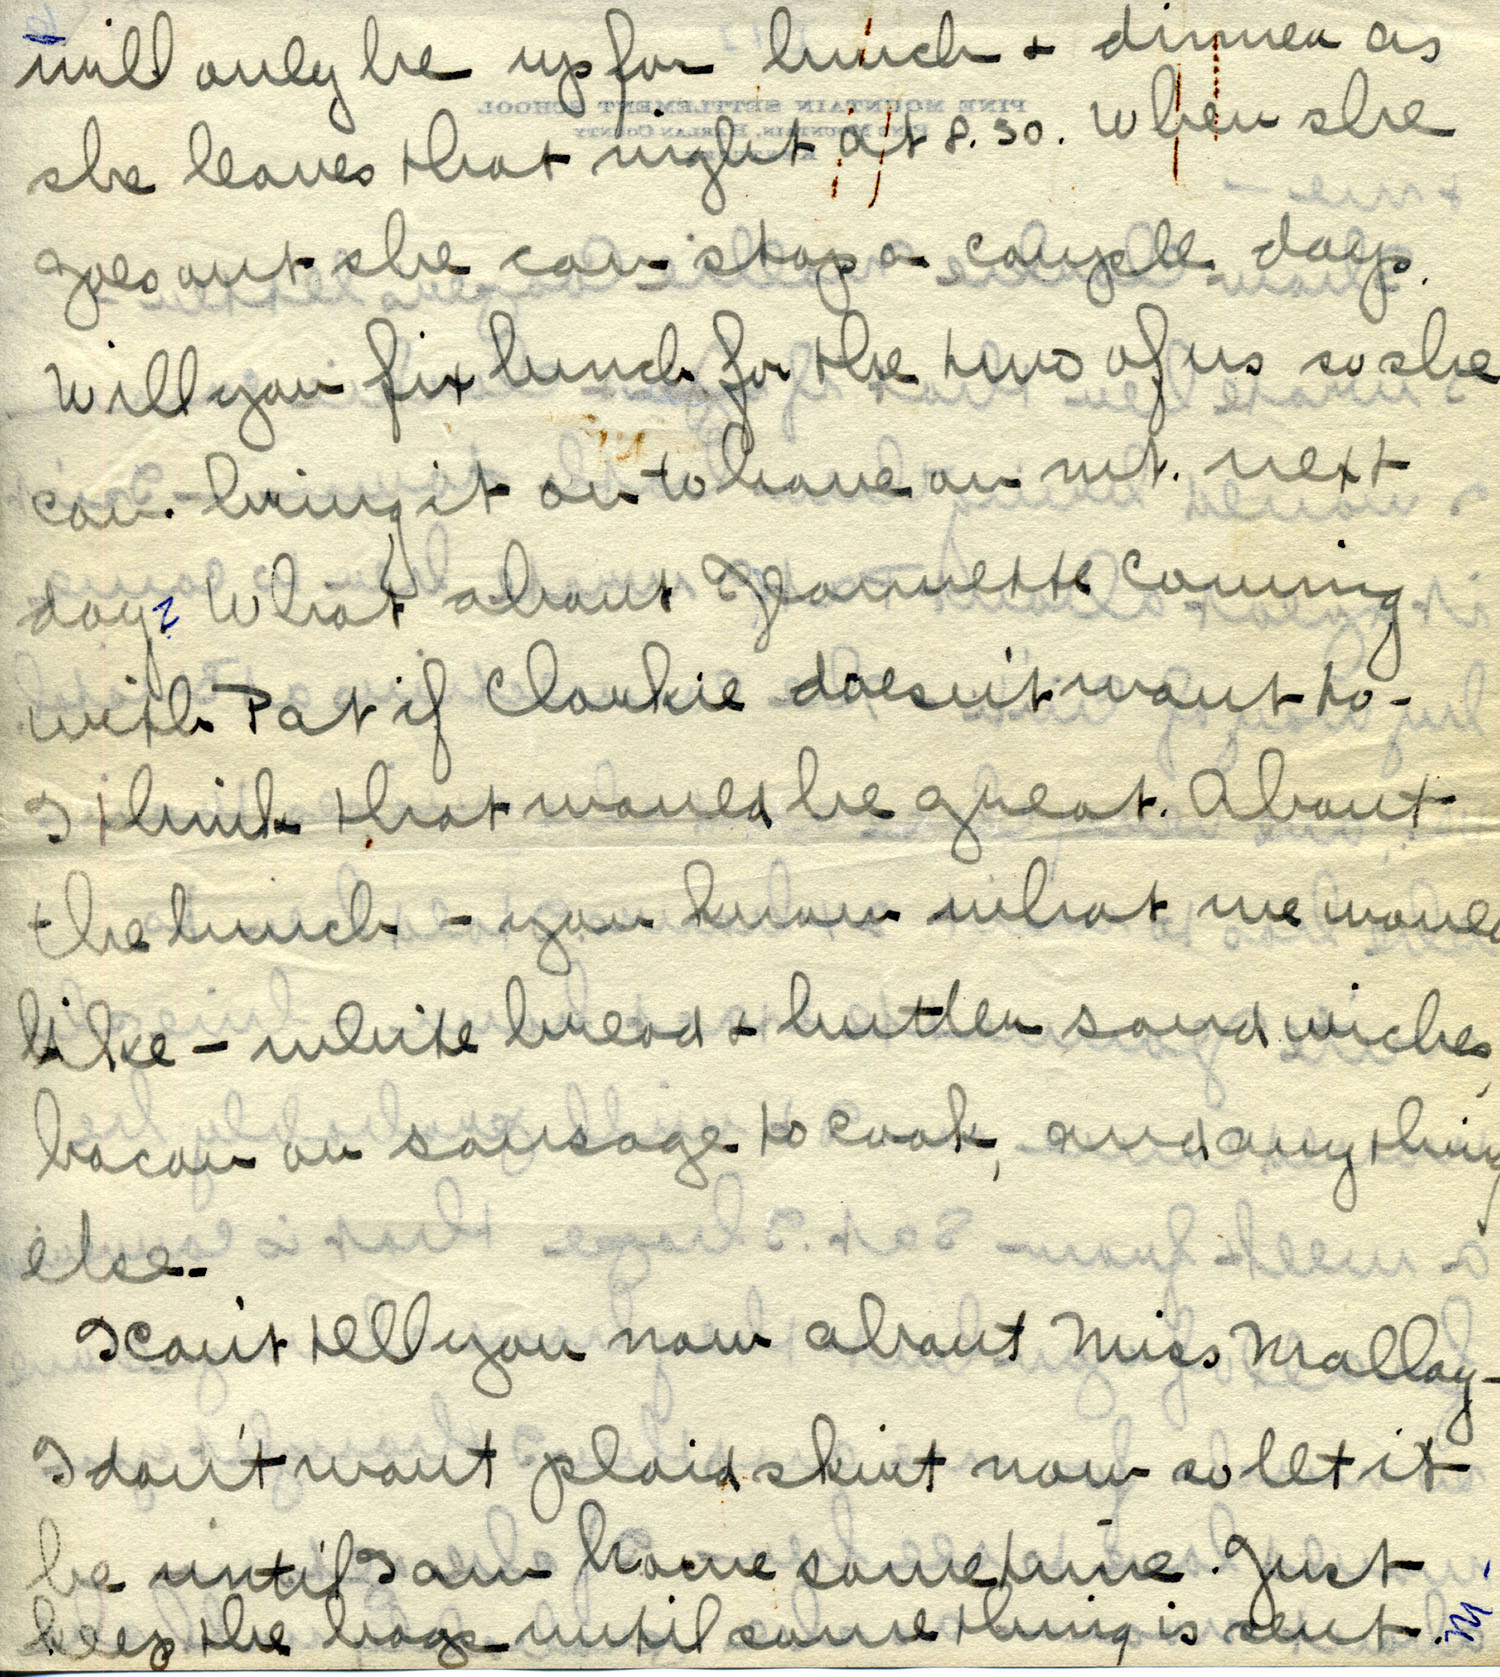 will only be up for lunch + dinner as
she leaves that night at 8.30. When she
goes out she can stop a couple days.
Will you fix lunch for the two of us so she
can bring it on to have on mt. next
day? What about Jeannette coming
with Pat if Clarkie doesn't want to -
I think that would be great. About
the lunch - you know what we would
like - white bread + butter sandwiches,
bacon or sausage to cook, and anything
else -
I can't tell you now about Miss Malloy -
I don't want plaid skirt now so let it
be until I am home sometime. Just
keep the bags until something is sent. M -
PINE MOUNTAIN SETTLEMENT SCHOOL
PINE MOUNTAIN, HARLAN COUNTY